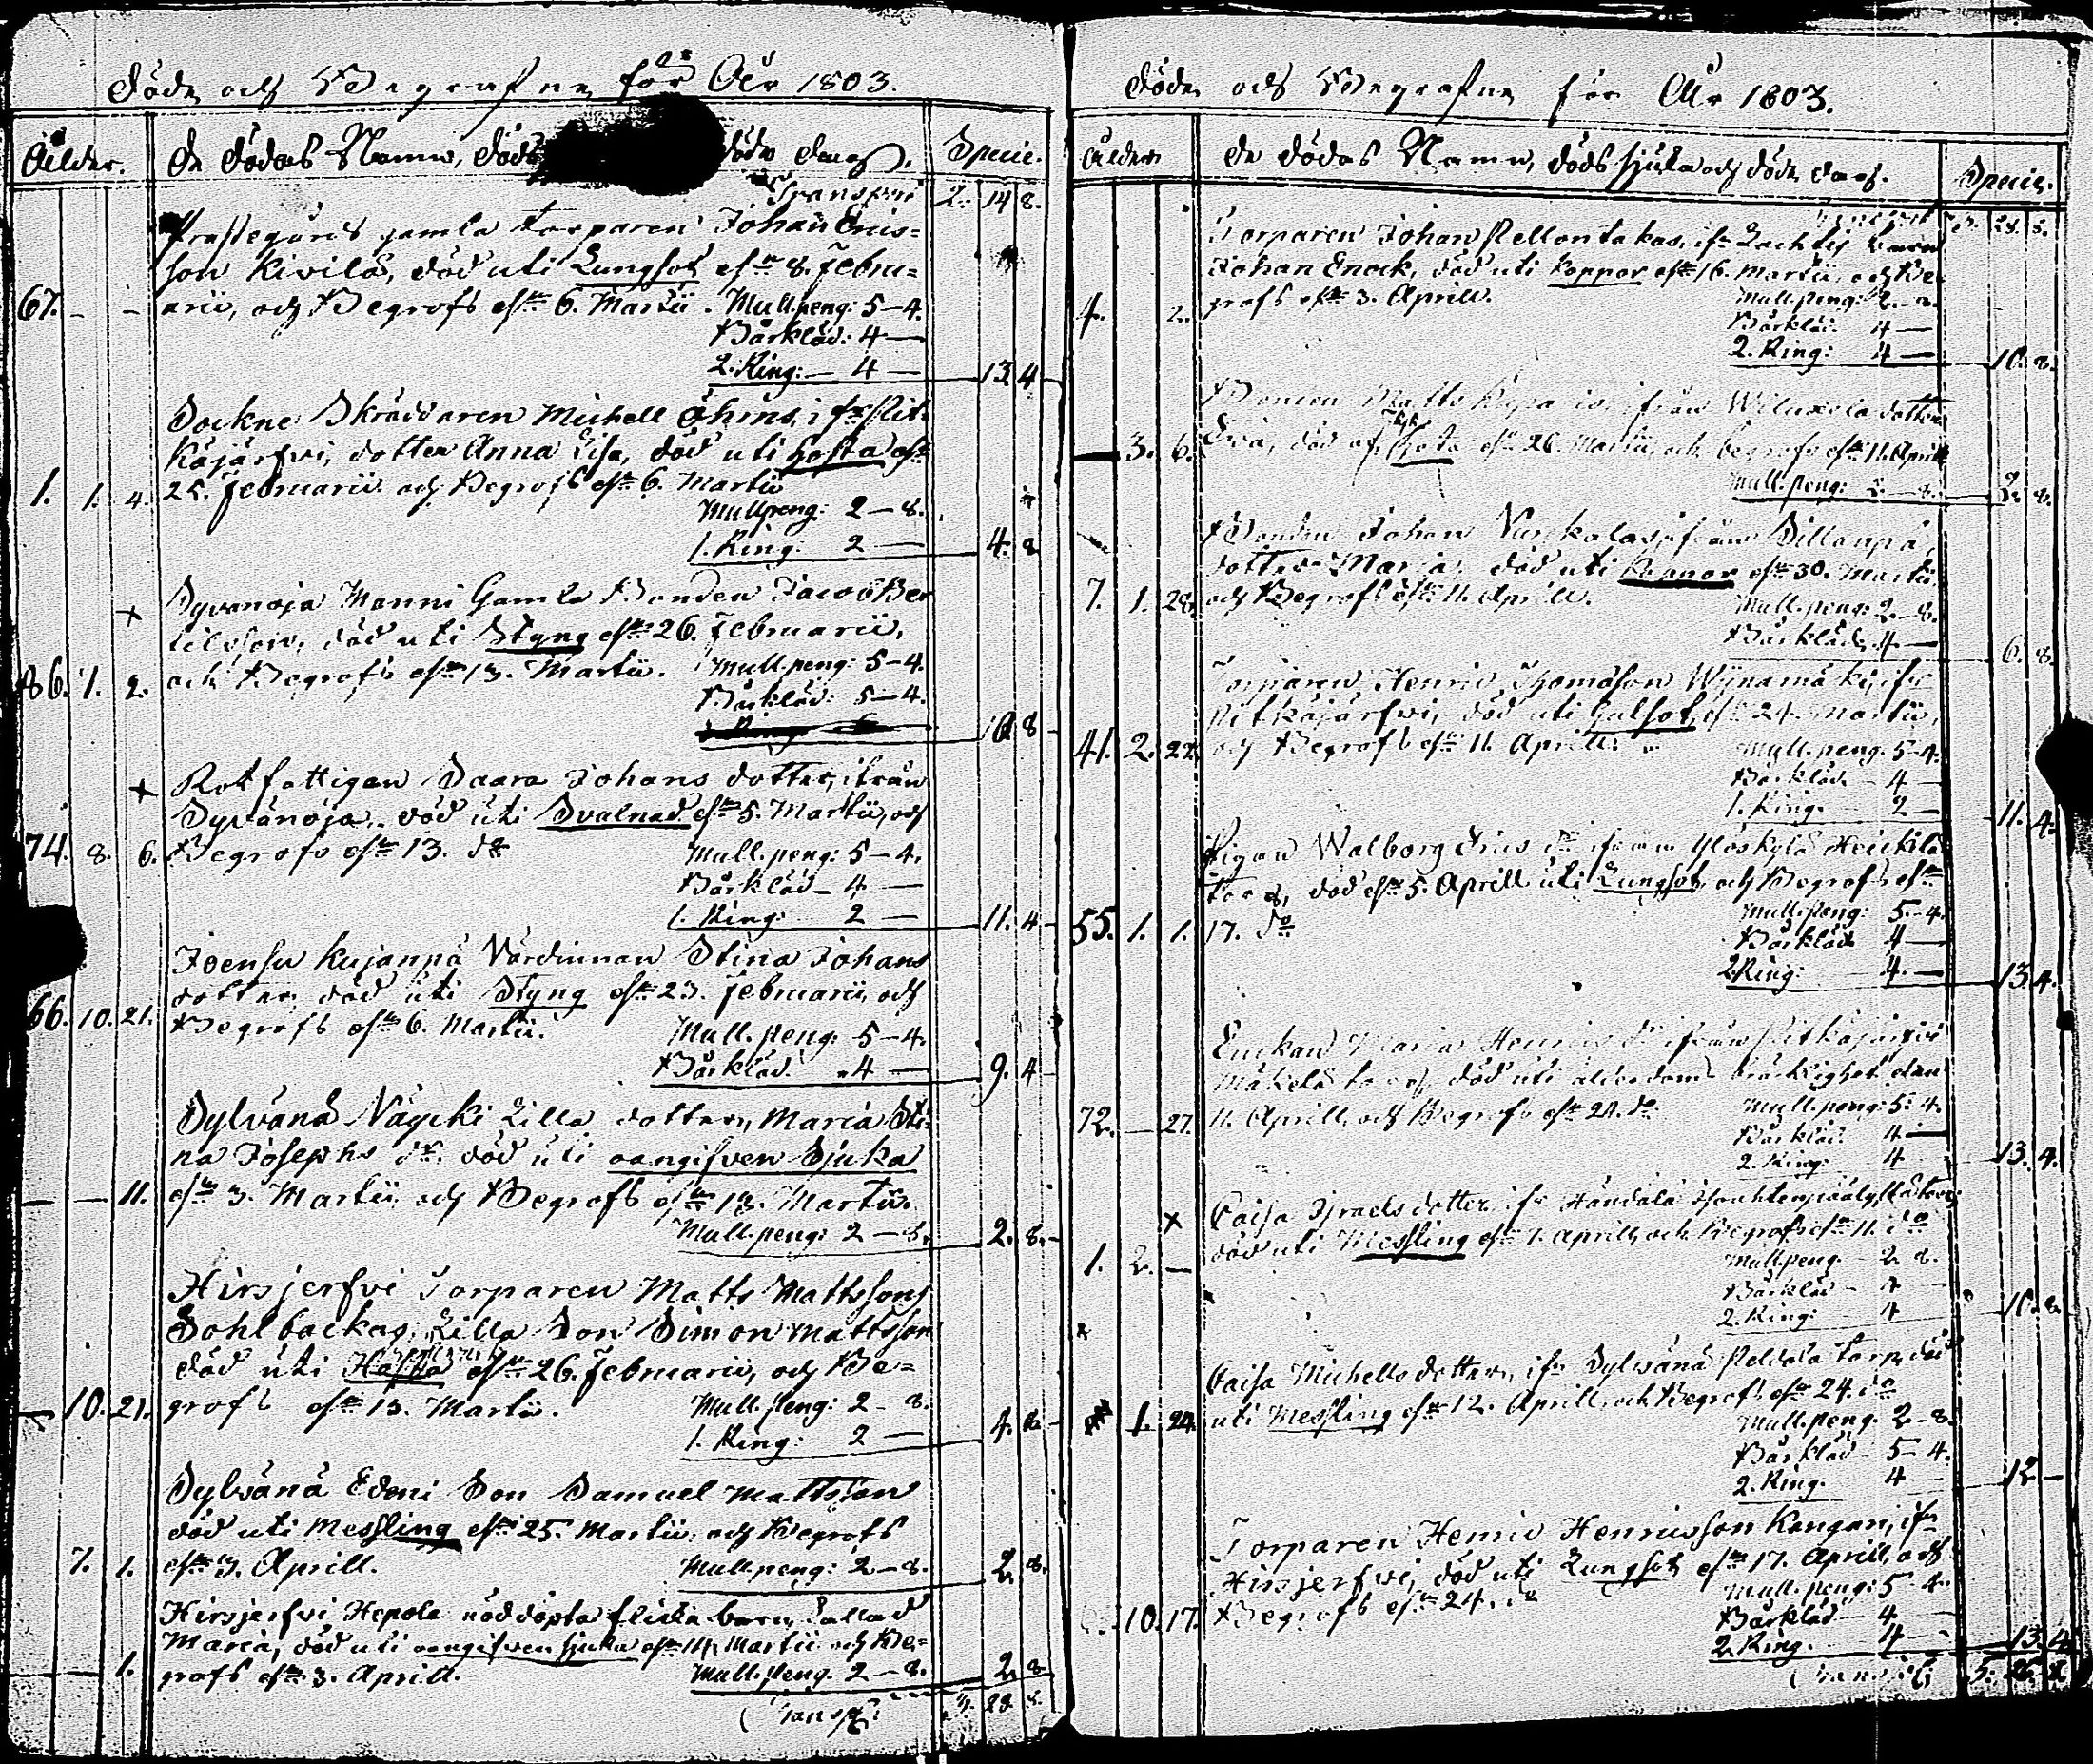 Döde och Begrafne för År 1803.
Ålder. De Dödas Namn, Döds döde dag. Specie.
Transport 2. 14 8.
Prästegårds gamla torparen Johan Erics-
son Kivilä, död uti Lungsot den 8. Febru-
67. - - arii, och Begrofs den 6. Martii. Mull.peng: 5-4.
Bårkläd: 4 —
2. Ring: — 4 — 13. 4
Sockne Skräddaren Michell Öhms, ifr. Pit-
käjärfvi, dotter Anna Lisa, död uti Hosta den
1. 1. 4. 25. Februarii och Begrofs den 6. Martii
Mullpeng: 2 — 8.
1. Ring: 2 — 4. 8
+ Syvänoja Manni Gamla Bonden Jacob Ber
tilsson, död uti Styng den 26. Februarii,
86. 7. 2. och Begrofs den 13. Martii. Mull.peng: 5-4.
Bårkläd: 5-4.
10 8
+ Rotfattigan Saara Johans dotter, ifrån
Syvänoja, död uti Svalnad den 5. Martii, och
74. 8. 6. Begrofs den 13. do
Mull.peng: 5-4.
Bårkläd - 4 —
1. Ring: 2 — 11. 4
Joensu Kujanpä Värdinnan Stina Johans
dotter, död uti Styng den 23. Februarii, och
66. 10. 21. Begrofs den 6. Martii.
Mull.peng: 5-4.
Bårkläd. 4 — 9. 4
Sylvänä Näycki Lilla dotter, Maria Sti-
na Josephs dr, död uti oangifven Sjuka
— — 11. den 3. Martii och Begrofs den 13. Martii.
Mull.peng: 2 — 8. 2. 8.
Hirsjerfvi Torparen Matts Mattssons
Sohlbackas, Lilla Son Simon Mattsson
död uti Hosta den 26. Februarii, och Be-
— 10. 21. grofs den 13. Martii. Mull.peng: 2 - 8.
1. Ring: 2 — 4. 8.
Sylvänä Edoni Son Samuel Mattsson
död uti Messling den 25. Martii och Begrofs
7. 1. den 3. Aprill. Mull.peng: 2-8. 2. 8.
Hirsjerfvi Hepola nöddöpta flicka barn, kallad
Maria, död uti oangifven sjuka den 14. Martii och Be-
1. grofs den 3. Aprill. Mull.peng. 2-8. 2. 8
Transp: 3. 28. 8.
Döde och Begrafne för År 1803.
Ålder De Dödas Namn, Döds sjuka och döde dag. Specie.
Transport 3. 28. 8.
Torparen Johan Pellontakas, ifr. Lachty barn
Johan Enock, död uti Koppor den 16. Martii, och Be
4. 2. grofs den 3. Aprill. Mull.peng: 2.-8.
Bårkläd. 4 —
2. Ring: 4 — 10. 8.
Bonden Matts ifrån dotter
— 3. 6. Eva, död af den 26. Martii och begrofs den 11. Aprill
Mull.peng: 2.-8. 2. 8.
Bonden Johan ifrån Sillanpä,
dotter Maria, död uti Koppor den 30. Martii
7. 1. 28. och Begrofs den 11. Aprill. Mull.peng: 2.-8.
Bårkläd: 4 — 6. 8.
Torparen Henric Thomasson Wijnamäki, ifr
Pitkäjärfvi, död uti Gulsot, den 24. Martii,
41. 2. 22. och Begrofs den 11. Aprill. Mull.peng. 5-4.
Bårkläd. 4 —
1. Ring. 2 — 11. 4.
Pigan Walborg Erics dr ifrån Yläskylä Heickilä
torp, död den 5. Aprill uti Lungsot, och Begrofs den
55. 1. 1. 17. do Mull.peng: 5.-4.
Bårkläd 4 —
2 Ring: 4. — 13. 4.
Enckan Maria Henrics dr ifrån Pitkäjärfvi
Mäkelä torp, död uti ålderdoms bräcklighet den
72. — 27. 11. Aprill, och Begrofs den 24. do Mull.peng: 5.-4.
Bårkläd. 4 —
2. Ring: 4 13. 4.
x Caisa Israels dotter ifr Händälä
död uti Messling den 1. Aprill, och Begrofs den 11. do
1. 2. — Mullpeng. 2. 8.
Bårkläd - 4 —
2. Ring: 4 10. 8.
Caisa Michells dotter, ifr Sylvänä Peldola torp, död
1. 24. uti Messling den 12. Aprill, och Begrofs den 24. do
Mull.peng. 2-8.
Bårkläd - 5-4.
2. Ring. 4 12 —
Torparen Henric Henricsson Kangari, ifr
Hirsjerfvi, död uti Lungsot den 17. Aprill, och
10. 17. Begrofs den 24. do Mull.peng: 5-4.
Bårkläd - 4
2. Ring. 4 13. 4
Transp: 5.